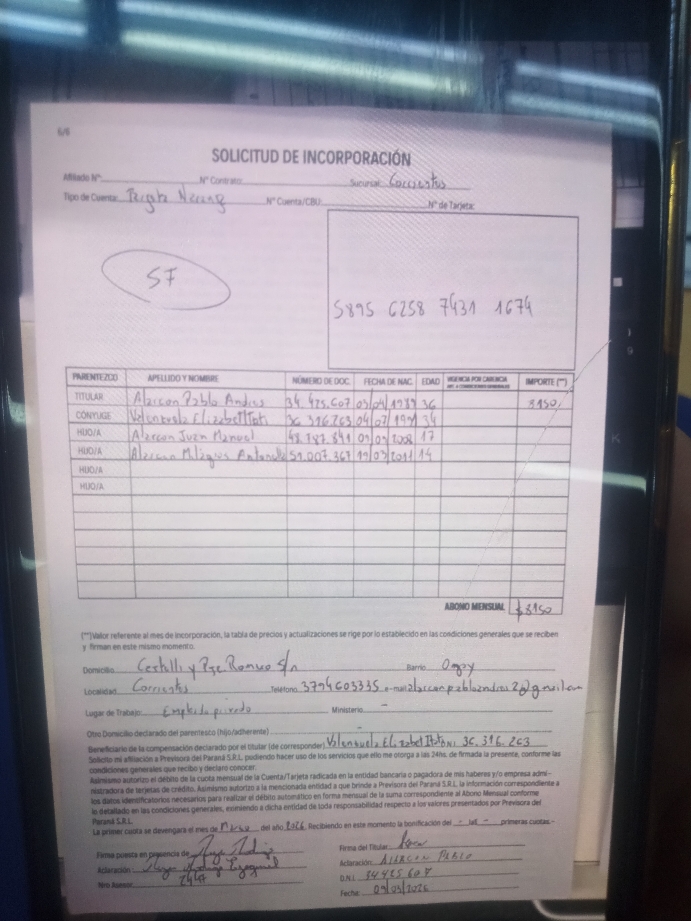 6/6
SOLICITUD DE INCORPORACIÓN
Afiliado Nº: Nº Contrato: Sucursal: Corrientes
Tipo de Cuenta: Tarjeta Naranj Nº Cuenta/CBU: Nº de Tarjeta:
SF
5895 6258 7431 1674
PARENTEZCO APELLIDO Y NOMBRE NÚMERO DE DOC. FECHA DE NAC. EDAD VIGENCIA POR CARENCIA IMPORTE (**)
TITULAR Alarcon Pablo Andres 34.425.607 03/04/1989 36 3150
CÓNYUGE Valenzuela Elizabet Itati 36.316.263 04/07/1991 34
HIJO/A Alarcon Juan Manuel 48.787.841 09/09/2008 17
HIJO/A Alarcon Milagros 51.007.367 19/03/2011 14
HIJO/A
HIJO/A
ABONO MENSUAL $3150
(**)Valor referente al mes de incorporación, la tabla de precios y actualizaciones se rige por lo establecido en las condiciones generales que se reciben
y firman en este mismo momento.
Domicilio: Castelli y Pje. Romero s/n Barrio:
Localidad: Corrientes Teléfono: 3794603335 e-mail: alarconpabloandres2@gmail.com
Lugar de Trabajo: Empleado privado Ministerio: -
Otro Domicilio declarado del parentesco (hijo/adherente) -
Beneficiario de la compensación declarado por el titular (de corresponder) Valenzuela Elizabet Itati DNI: 36.316.263
Solicito mi afiliación a Previsora del Paraná S.R.L. pudiendo hacer uso de los servicios que ello me otorga a las 24hs. de firmada la presente, conforme las
condiciones generales que recibo y declaro conocer.
Asimismo autorizo el débito de la cuota mensual de la Cuenta/Tarjeta radicada en la entidad bancaria o pagadora de mis haberes y/o empresa admi-
nistradora de tarjetas de crédito. Asimismo autorizo a la mencionada entidad a que brinde a Previsora del Paraná S.R.L. la información correspondiente a
los datos identificatorios necesarios para realizar el débito automático en forma mensual de la suma correspondiente al Abono Mensual conforme
lo detallado en las condiciones generales, eximiendo a dicha entidad de toda responsabilidad respecto a los valores presentados por Previsora del
Paraná S.R.L.
La primer cuota se devengará el mes de Marzo del año 2026. Recibiendo en este momento la bonificación del - - primeras cuotas.-
Firma puesta en presencia de Firma del Titular:
Aclaración: Ezequiel Aclaración: ALARCON PABLO
Nro Asesor: D.N.I.: 34425607
Fecha: 09/03/2026